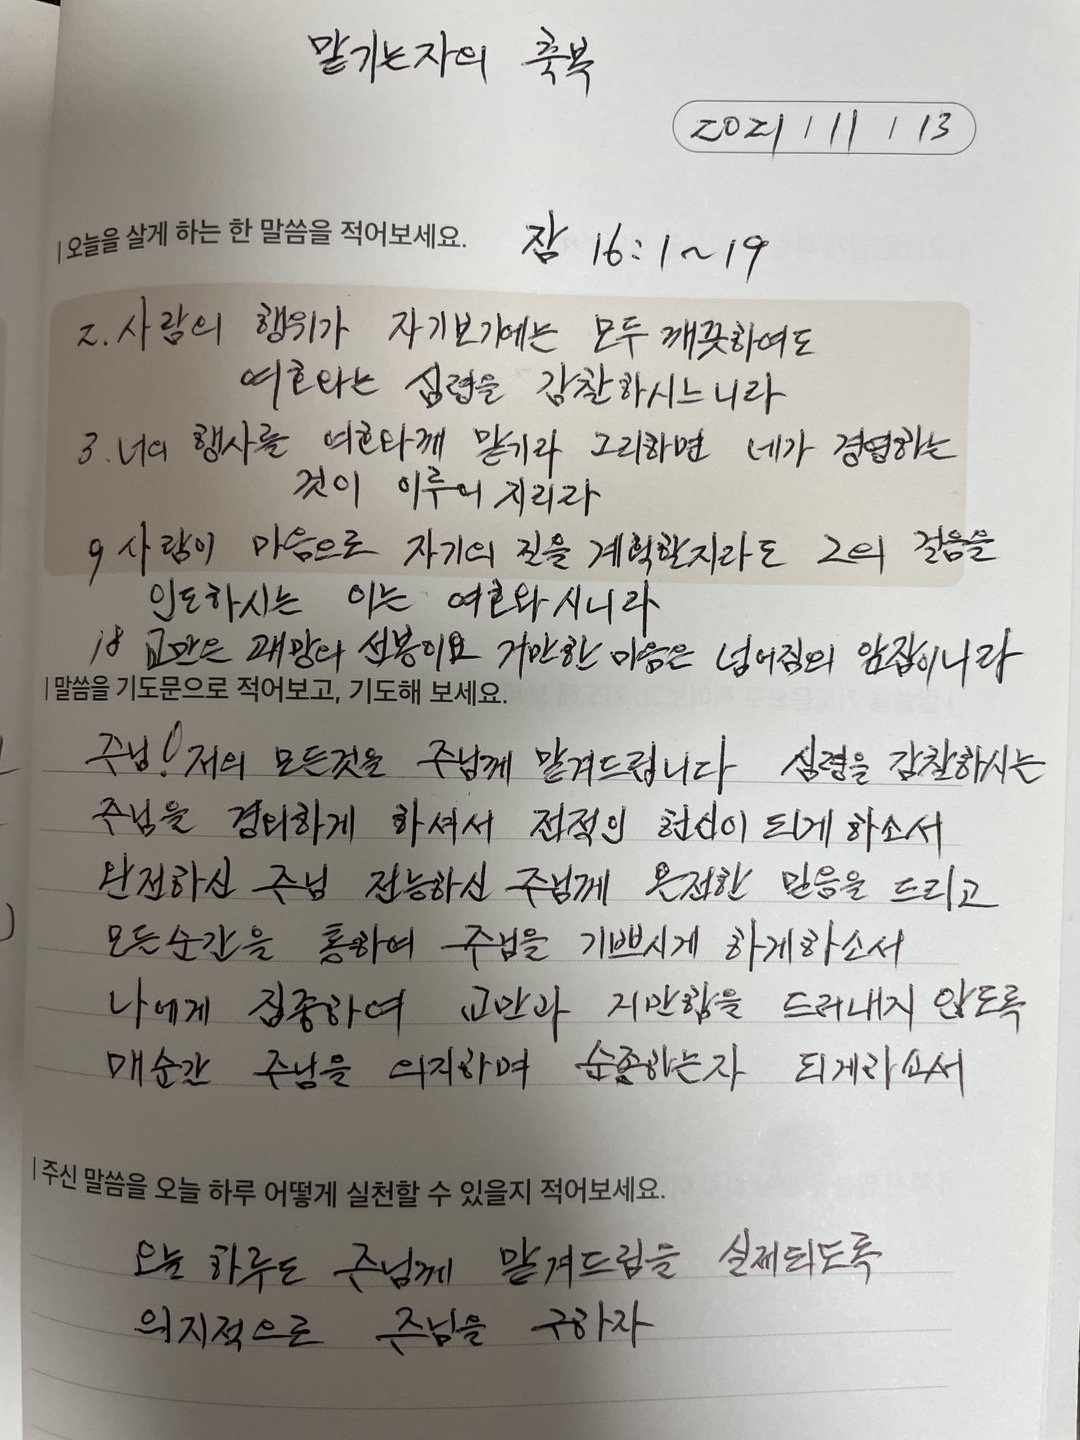 맡기는자의 축복
2021 / 11 / 13
오늘을 살게 하는 한 말씀을 적어보세요. 잠 16:1~19
2. 사람의 행위가 자기보기에는 모두 깨끗하여도
여호와는 심령을 감찰하시느니라
3. 너의 행사를 여호와께 맡기라 그리하면 네가 경영하는
것이 이루어 지리라
9 사람이 마음으로 자기의 길을 계획할지라도 그의 걸음을
인도하시는 이는 여호와시니라
18 교만은 패망의 선봉이요 거만한 마음은 넘어짐의 앞잡이니라
말씀을 기도문으로 적어보고, 기도해 보세요.
주님! 저의 모든것을 주님께 맡겨드립니다 심령을 감찰하시는
주님을 경외하게 하셔서 전적인 헌신이 되게 하소서
완전하신 주님 전능하신 주님께 온전한 믿음을 드리고
모든순간을 통하여 주님을 기쁘시게 하게하소서
나에게 집중하여 교만과 자만함을 드러내지 않도록
매순간 주님을 의지하며 순종하는자 되게하소서
주신 말씀을 오늘 하루 어떻게 실천할 수 있을지 적어보세요.
오늘 하루도 주님께 맡겨드림을 실제되도록
의지적으로 주님을 구하자